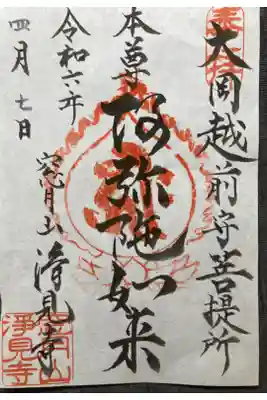 大岡越前守菩提所
本尊
阿弥陀如来
令和六年
四月七日
窓月山 浄見寺
浄見寺